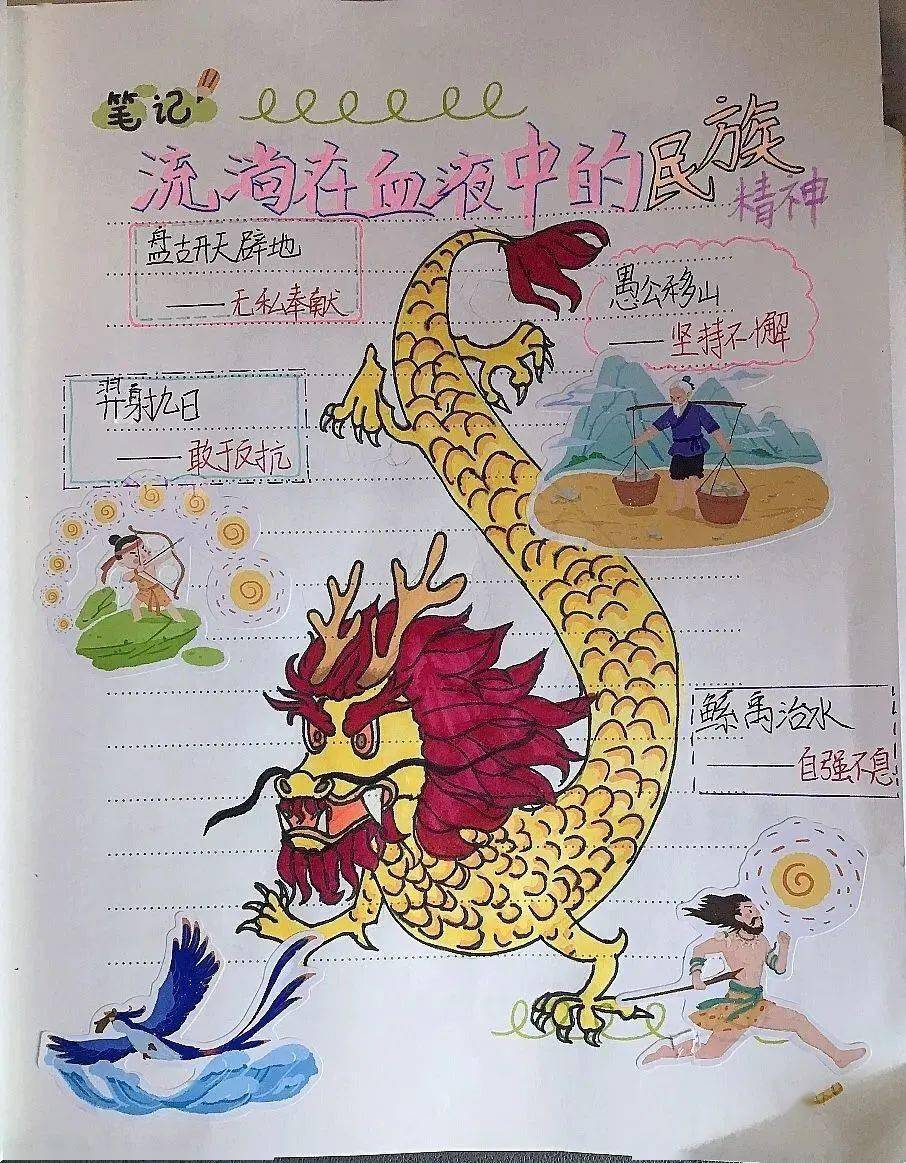 笔记
流淌在血液中的民族
精神
盘古开天辟地
——无私奉献
愚公移山
——坚持不懈
羿射九日
——敢于反抗
鲧禹治水
——自强不息